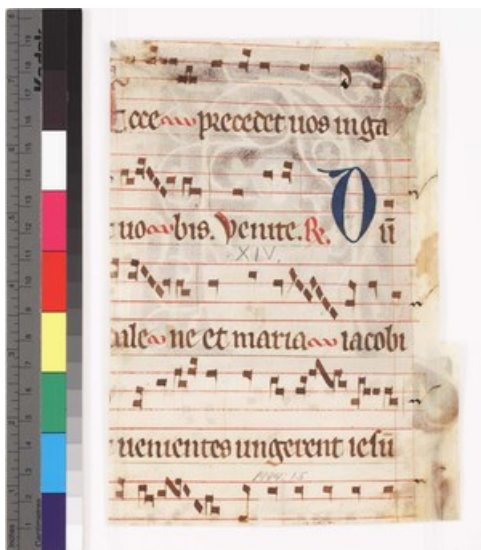 Kodak
Ecce precedet uos in ga
uobis. Venite. R. Dū
XIV.
ale ne et maria iacobi
uenientes ungerent iesū